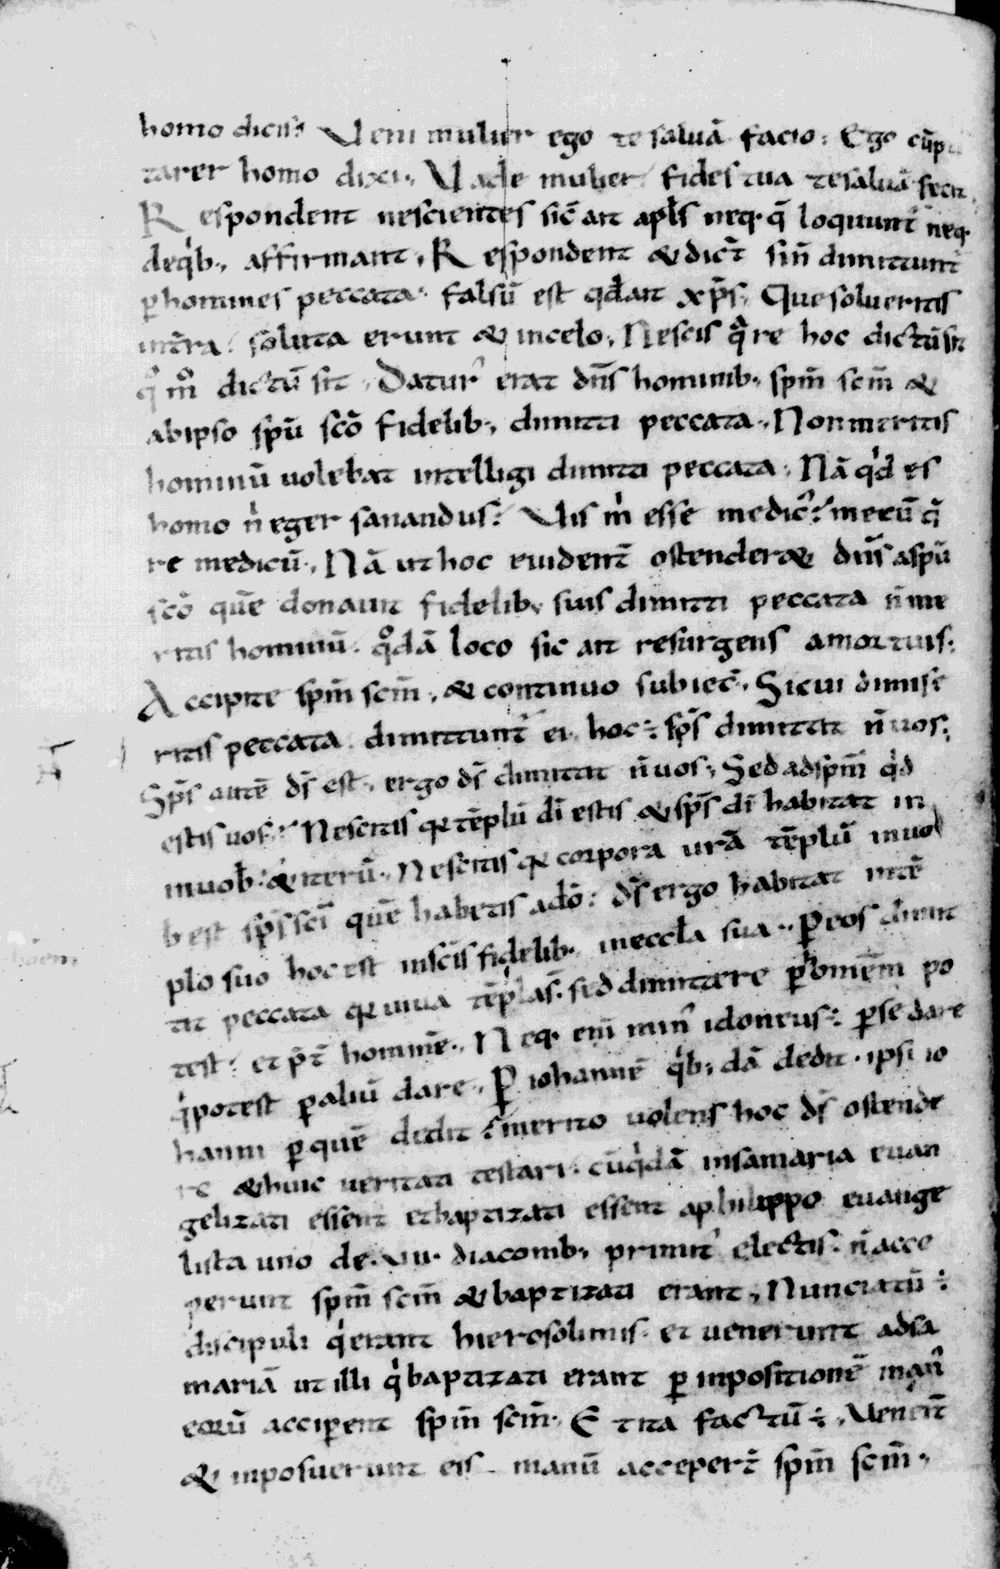 homo dicis? Veni mulier ego te saluā facio. Ego cū pu
tarer homo dixi. Vade mulier fides tua te saluā fecit.
Respondent nescientes sic̄ ait apls neq· q̄ loquunt' neq·
de q'b·, affirmant. Respondent & dic̄t si n̄ dimittunt'
p homines peccata· falsū est qd ait xp̄s. Que solueritis
in tr̄a. soluta erunt & in celo. Nescis q̄re hoc dictū sit
qō mō dictū sit. Datur' erat dn̄s hominib· sp̄m scm̄ &
ab ipso sp̄u scō fidelib·, dimitti peccata. Non meritis
hominū uolebat intelligi dimitti peccata. Nā q'd es
homo n' eger sanandus? Vis m' esse medic'? mecū q̄
re medicū. Nā ut hoc euident̄ ostender& dn̄s a sp̄u
scō quē donauit fidelib· suis dimitti peccata n̄ me
ritis hominū. qōdā loco sic ait resurgens a mortuis.
Accipite sp̄m scm̄. & continuo subiec̄. Si cui dimise
ritis peccata dimittunt' ei. hoc ÷ sp̄s dimittit n̄ uos.
Sp̄s autē ds̄ est. ergo ds̄ dimittit n̄ uos. Sed ad sp̄m q'd
estis uos? Nescitis q templū dī estis & sp̄s dī habitat in
in uob? & iterū. Nescitis q corpora urā tēplū in uo
b est sp̄s scī quē habetis a dō? ds̄ ergo habitat in tē
plo suo hoc est in scīs fidelib· in eccla sua. P eos dimit
tit peccata q uiua tēpla s̄. sed dimittere p homēm po
test. et p̄t hominē. Neq· enī min' idoneus ÷ p se dare
q'potest p aliū dare. P iohannē q'b· dā dedit. ipsi io
hanni p quē dedit? merito uolens hoc ds̄ ostende
re & huic ueritati testari. cū q'dā in samaria euan
gelizati essent et baptizati essent a philippo euange
lista uno de .vii. diaconib· primit' electis. n̄ acce
perunt sp̄m scm̄ & baptizati erant. Nunciatū ÷
discipuli q'erant hierosolimis. et uenerunt ad sa
mariā ut illi q'baptizati erant p inpositionē manū
eorū acciperent sp̄m scm̄. Et ita factū ÷. Uener̄t
& inposuerunt eis manū acceper̄t sp̄m scm̄.